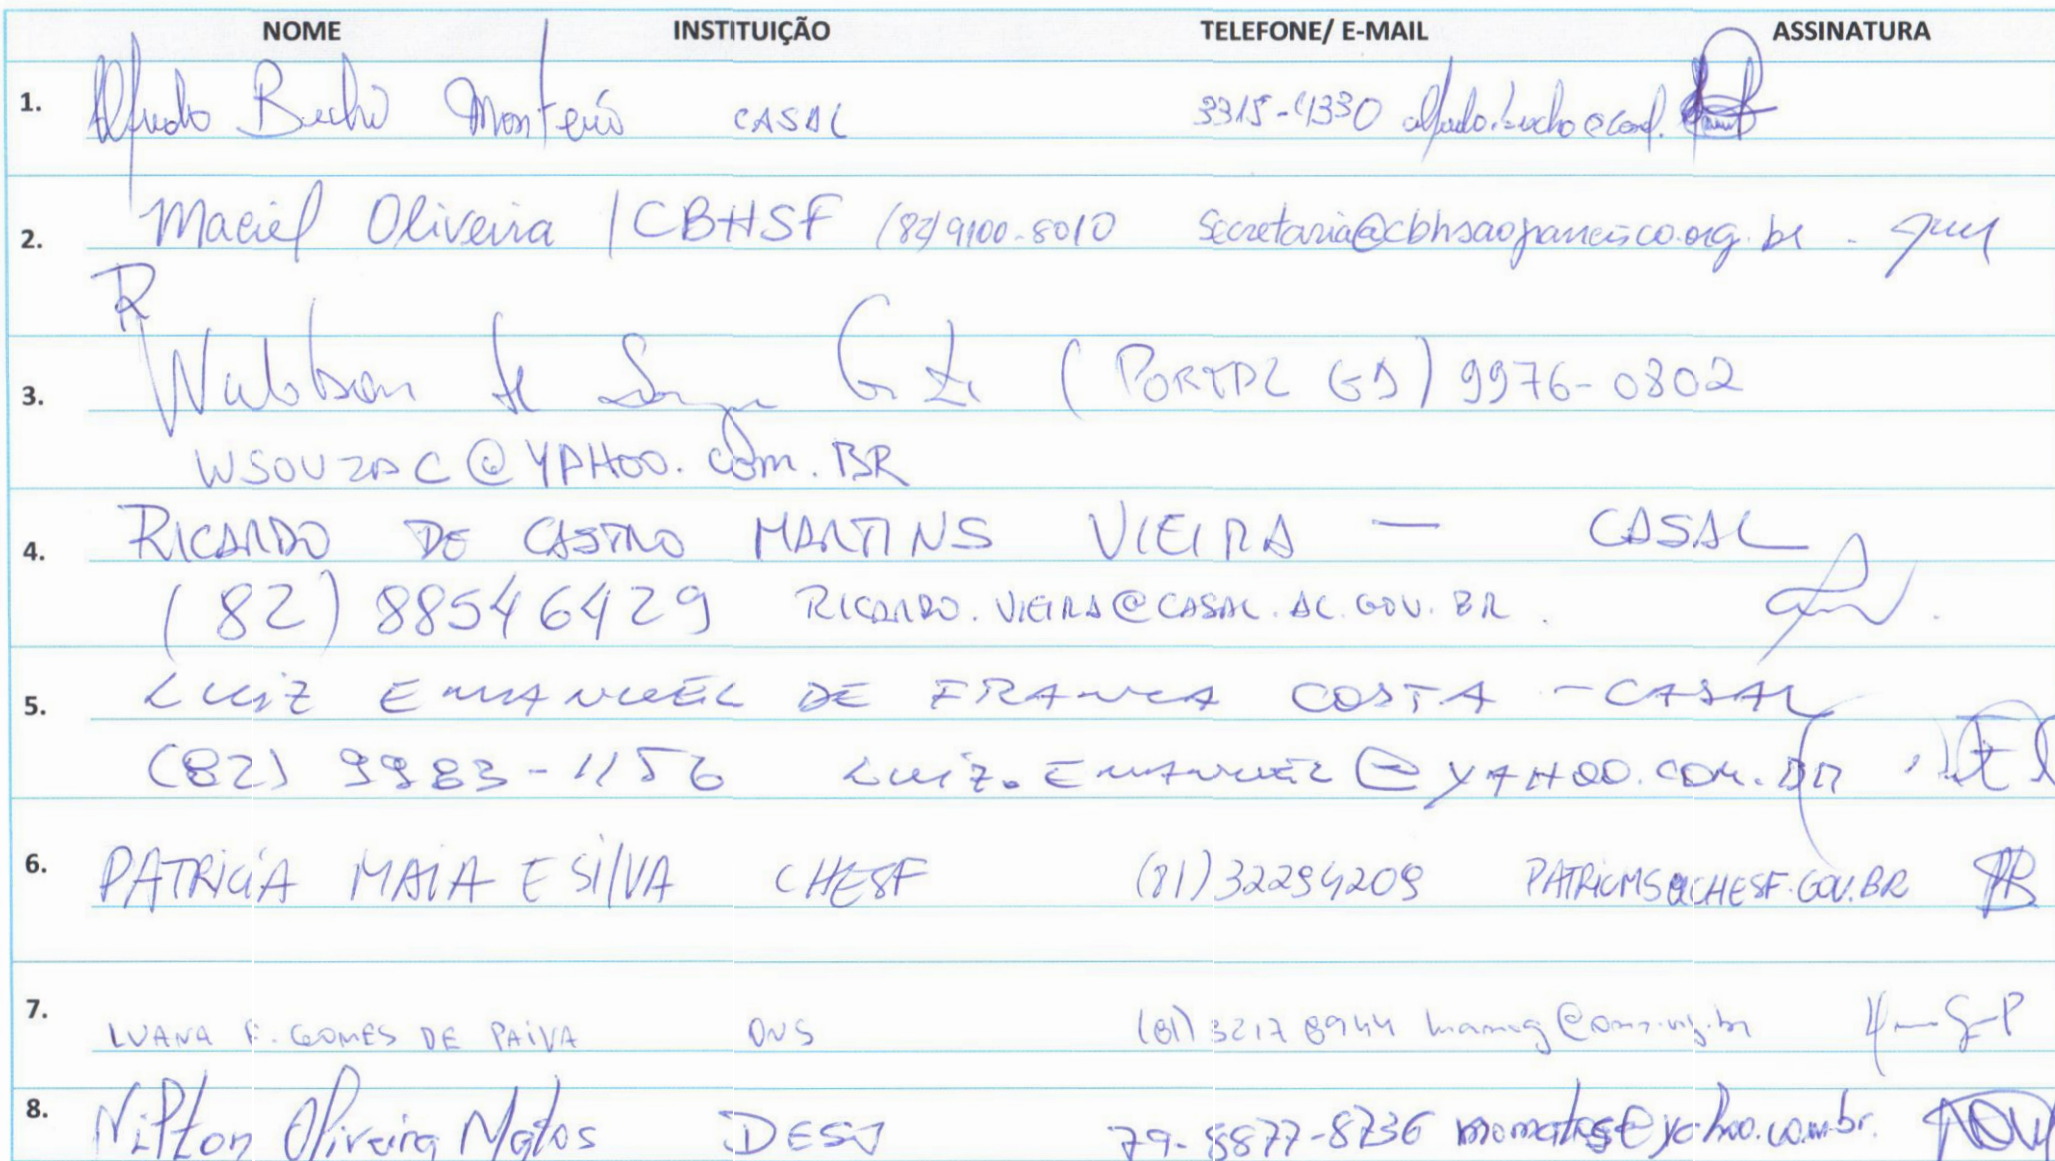 NOME INSTITUIÇÃO TELEFONE/ E-MAIL ASSINATURA
1. Alfredo Monteiro CASAL 3315-
2. Maciel Oliveira / CBHSF (82) 9100-8010 secretaria@cbhsaofrancisco.org.br
3. de (PORTAL GD) 9976-0802
WSOUZAC@YAHOO.COM.BR
4. RICARDO DE CASTRO MARTINS VIEIRA — CASAL
(82) 88546429 RICARDO.VIEIRA@CASAL.AL.GOV.BR.
5. LUIZ EMANUEL DE FRANCA COSTA - CASAL
(82) 9983-1156 LUIZ.EMANUEL@YAHOO.COM.BR
6. PATRICIA MAIA E SILVA CHESF (81) 32294209 PATRICMS@CHESF.GOV.BR
7. LUANA F. GOMES DE PAIVA ONS (81) 3217 8944
8. Nilton Oliveira Matos DESO 79-8877-8736